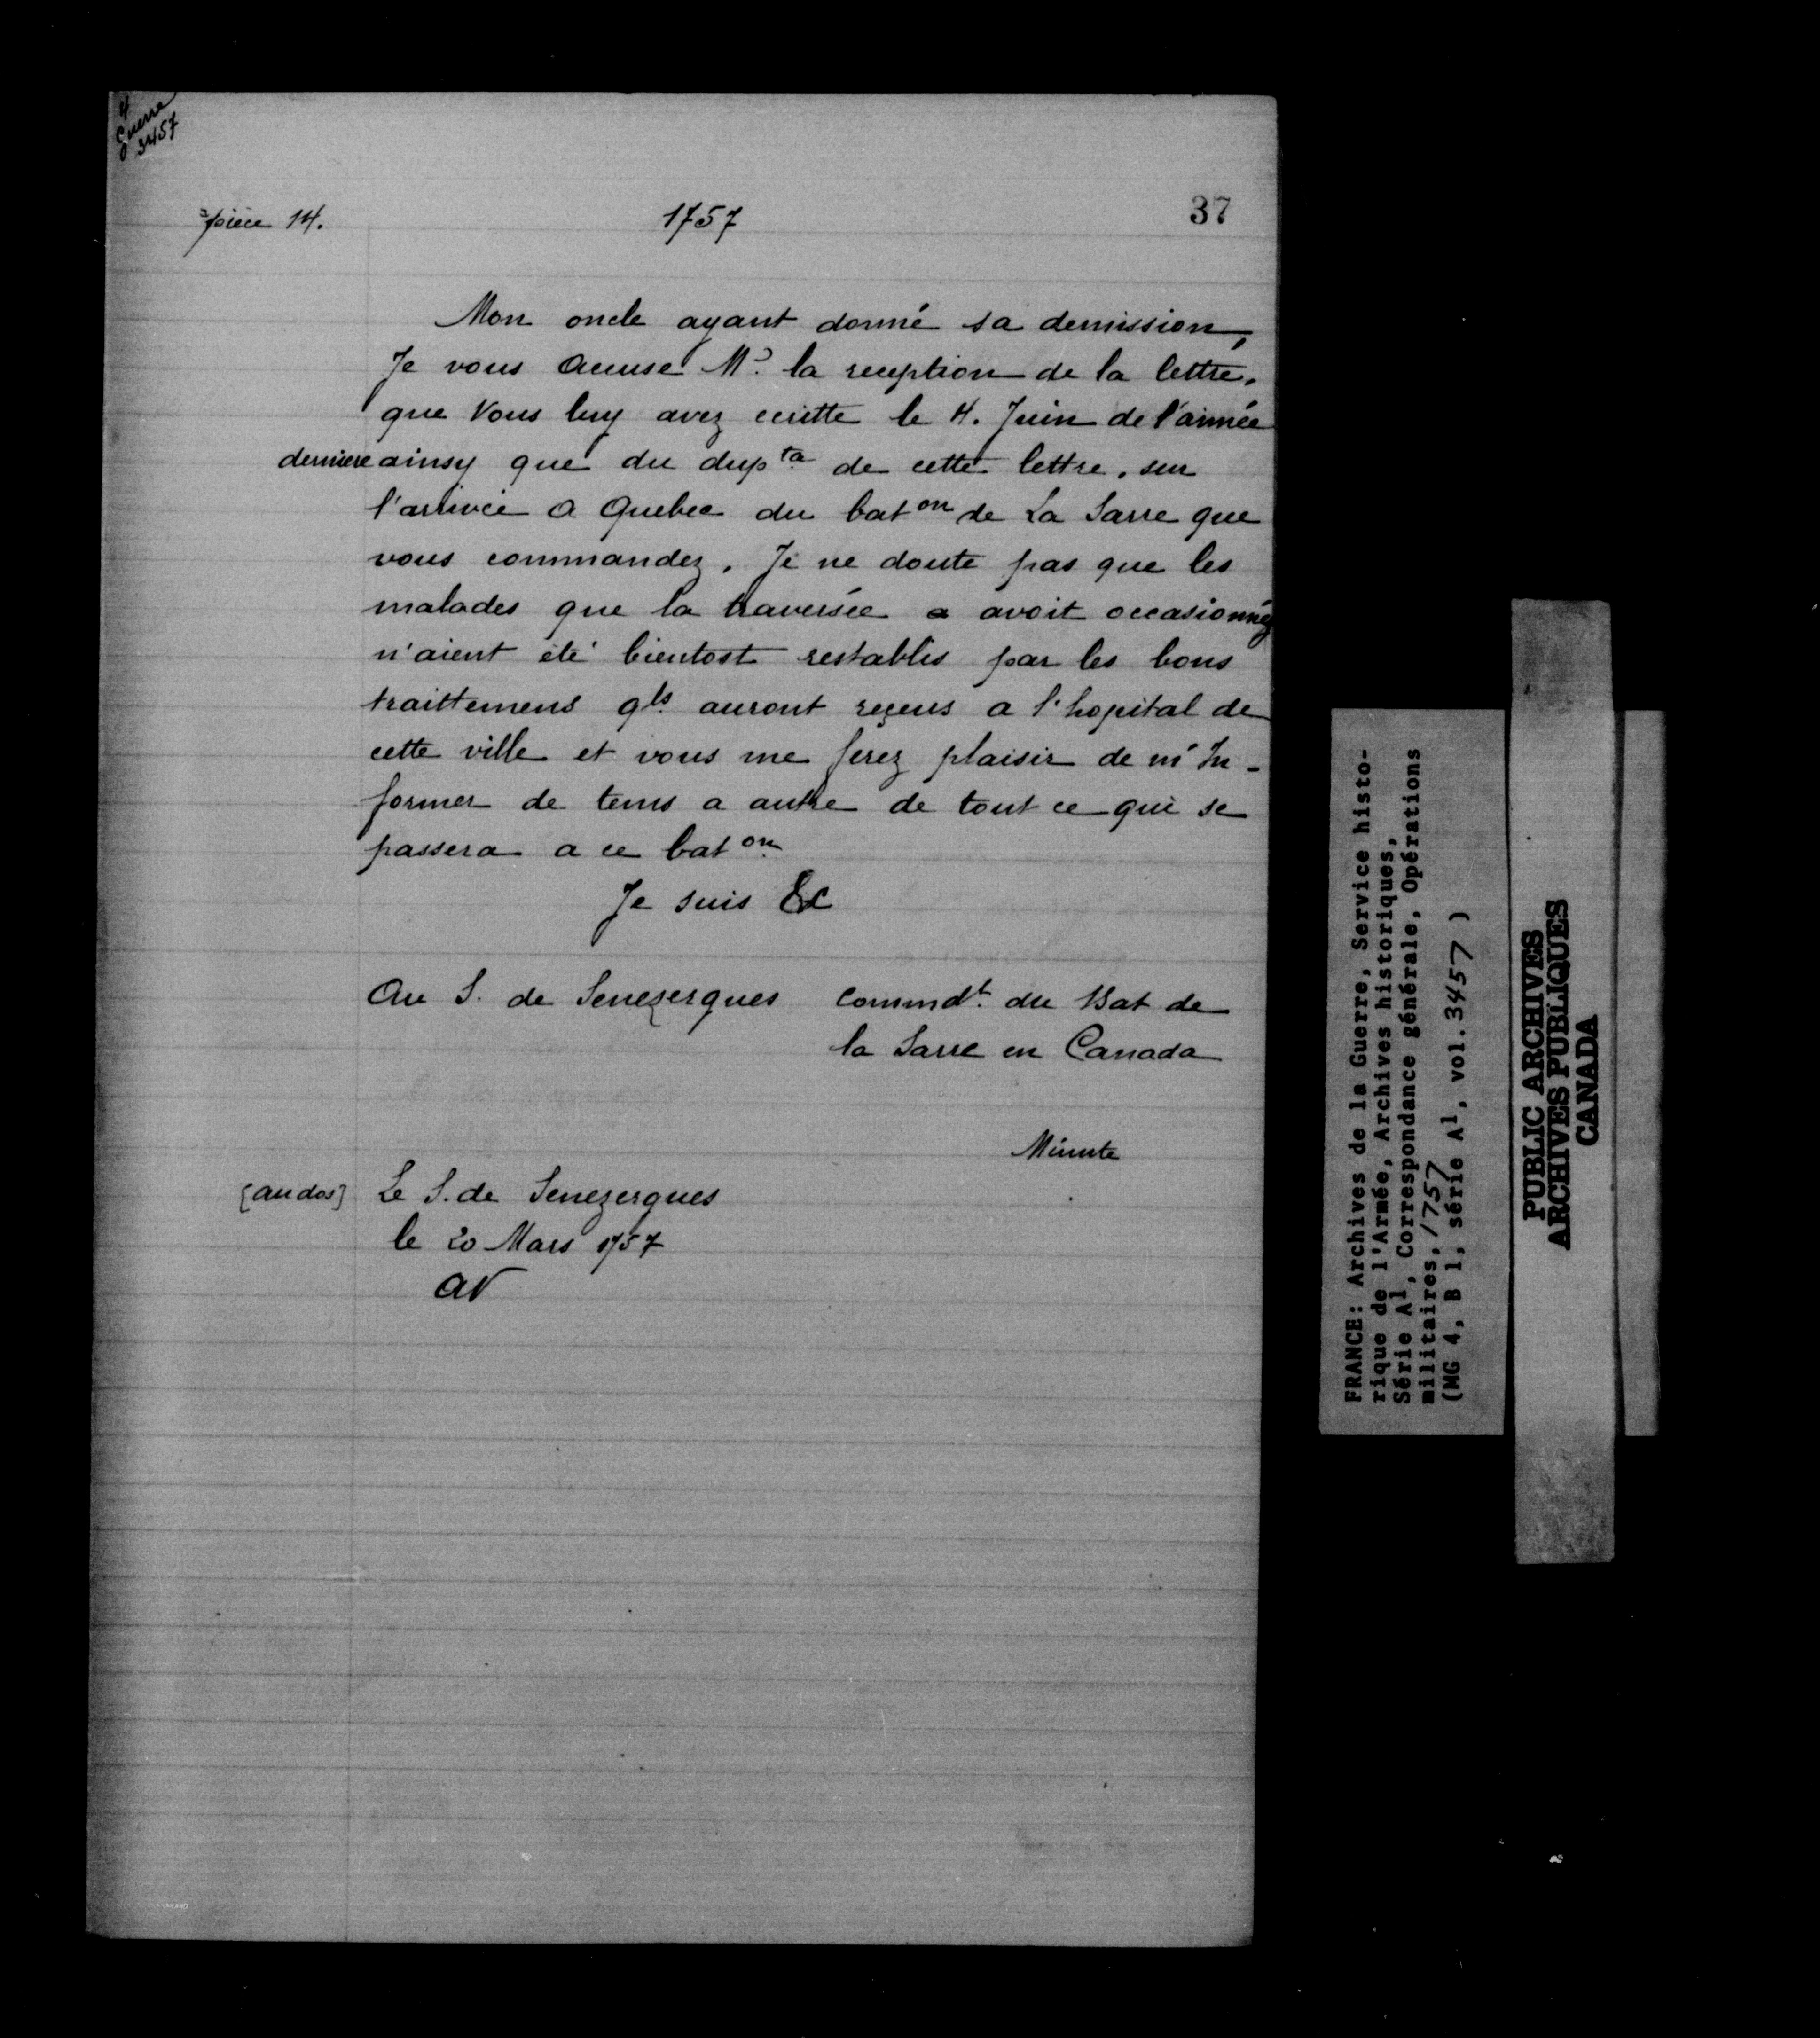 4
Guerre
3457
pièce 14.
1757
37
Mon oncle ayant donné sa demission,
Je vous accuse Mr. la reception de la lettre,
que vous luy avez ecritte le 4. Juin de l'année
derniere ainsy que du dupta. de cette lettre, sur
l'arrivée a Quebec du baton de La Sarre que
vous commandez. Je ne doute pas que les
malades que la traversée a avoit occasionnéz
n'aient eté bientost restablis par les bons
traittemens qls. auront reçeus a l'hopital de
cette ville et vous me ferez plaisir de m'In-
former de tems a autre de tout ce qui se
passera a ce baton.
Je suis &c
Au S. de Senezergues commdt. du Bat de
la Sarre en Canada
Minute
[au dos] Le S. de Senezergues
le 20 Mars 1757
AN
FRANCE: Archives de la Guerre, Service histo-
rique de l'Armée, Archives historiques,
Série A1, Correspondance générale, Opérations
militaires, 1757
(MG 4, B 1, série A1, vol. 3457 )
PUBLIC ARCHIVES
ARCHIVES PUBLIQUES
CANADA